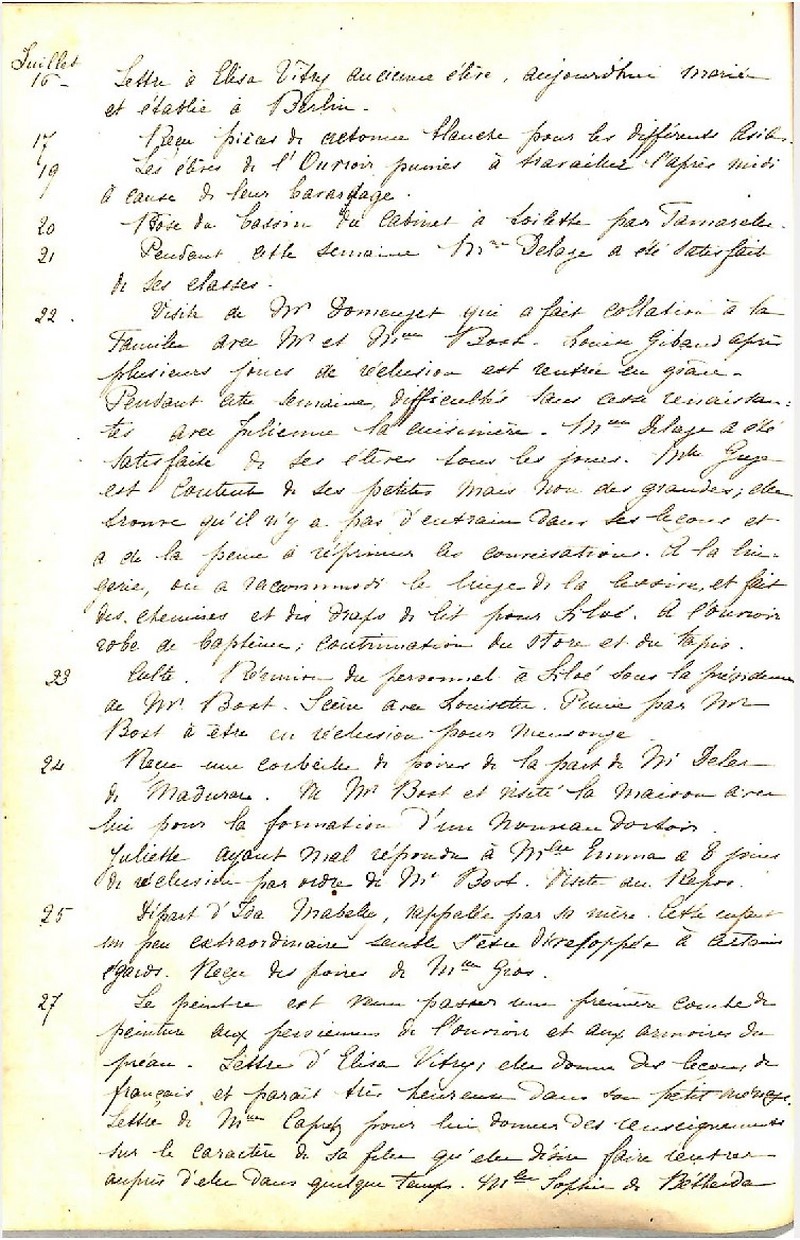 Juillet
16 - Lettre à Elisa Vitry ancienne élève, aujourd'hui mariée
et établie à Berlin.
17 Reçu pièces de cretonne blanche pour les différents Asiles.
19 Les élèves de l'Ouvroir punies à travailler l'après midi
à cause de leur bavardage.
20 Pose du bassin du cabinet à toilette par Tamarelle.
21 Pendant cette semaine Mme Delage a été satisfaite
de ses classes.
22. Visite de Mr Domenget qui a fait collation à la
Famille avec Mr et Mme Bost. Louise Gibaud après
plusieurs jours de réclusion est rentrée en grâce.
Pendant cette semaine, difficultés sans cesse renaissan-
tes avec Julienne la cuisinière. Mme Delage a été
satisfaite de ses élèves tous les jours. Mlle
est contente de ses petites mais non des grandes; elle
trouve qu'il n'y a pas d'entrain dans ses leçons et
a de la peine à réprimer les conversations. A la lin-
gerie, on a raccommodé le linge de la lessive, et fait
des chemises et des draps de lit pour Siloé. A l'ouvroir
robe de baptême; continuation du store et du tapis.
23 Culte. Réunion du personnel à Siloé sous la présidence
de Mr Bost. Scène avec Louisette. Punie par Mr
Bost à être en réclusion pour mensonge.
24 Reçu une corbeille de poires de la part de Mr
de Madurau. Vu Mr Bost et visité la maison avec
lui pour la formation d'un nouveau dortoir.
Juliette ayant mal répondu à Mlle Emma a 8 jours
de réclusion par ordre de Mr Bost. Visite au Repos.
25 Départ d'Ida Mabelly, rappelée par sa mère. Cette enfant
un peu extraordinaire semble s'être développée à certains
égards. Reçu des poires de Mme Gros.
27 Le peintre est venu passer une première couche de
peinture aux persiennes de l'ouvroir et aux armoires du
préau. Lettre d'Elisa Vitry; elle donne des leçons de
français et paraît très heureuse dans son petit ménage.
Lettre de Mme pour lui donner des renseignements
sur le caractère de sa fille qu'elle désire faire rentrer
auprès d'elle dans quelque temps. Mlle Sophie de Béthesda